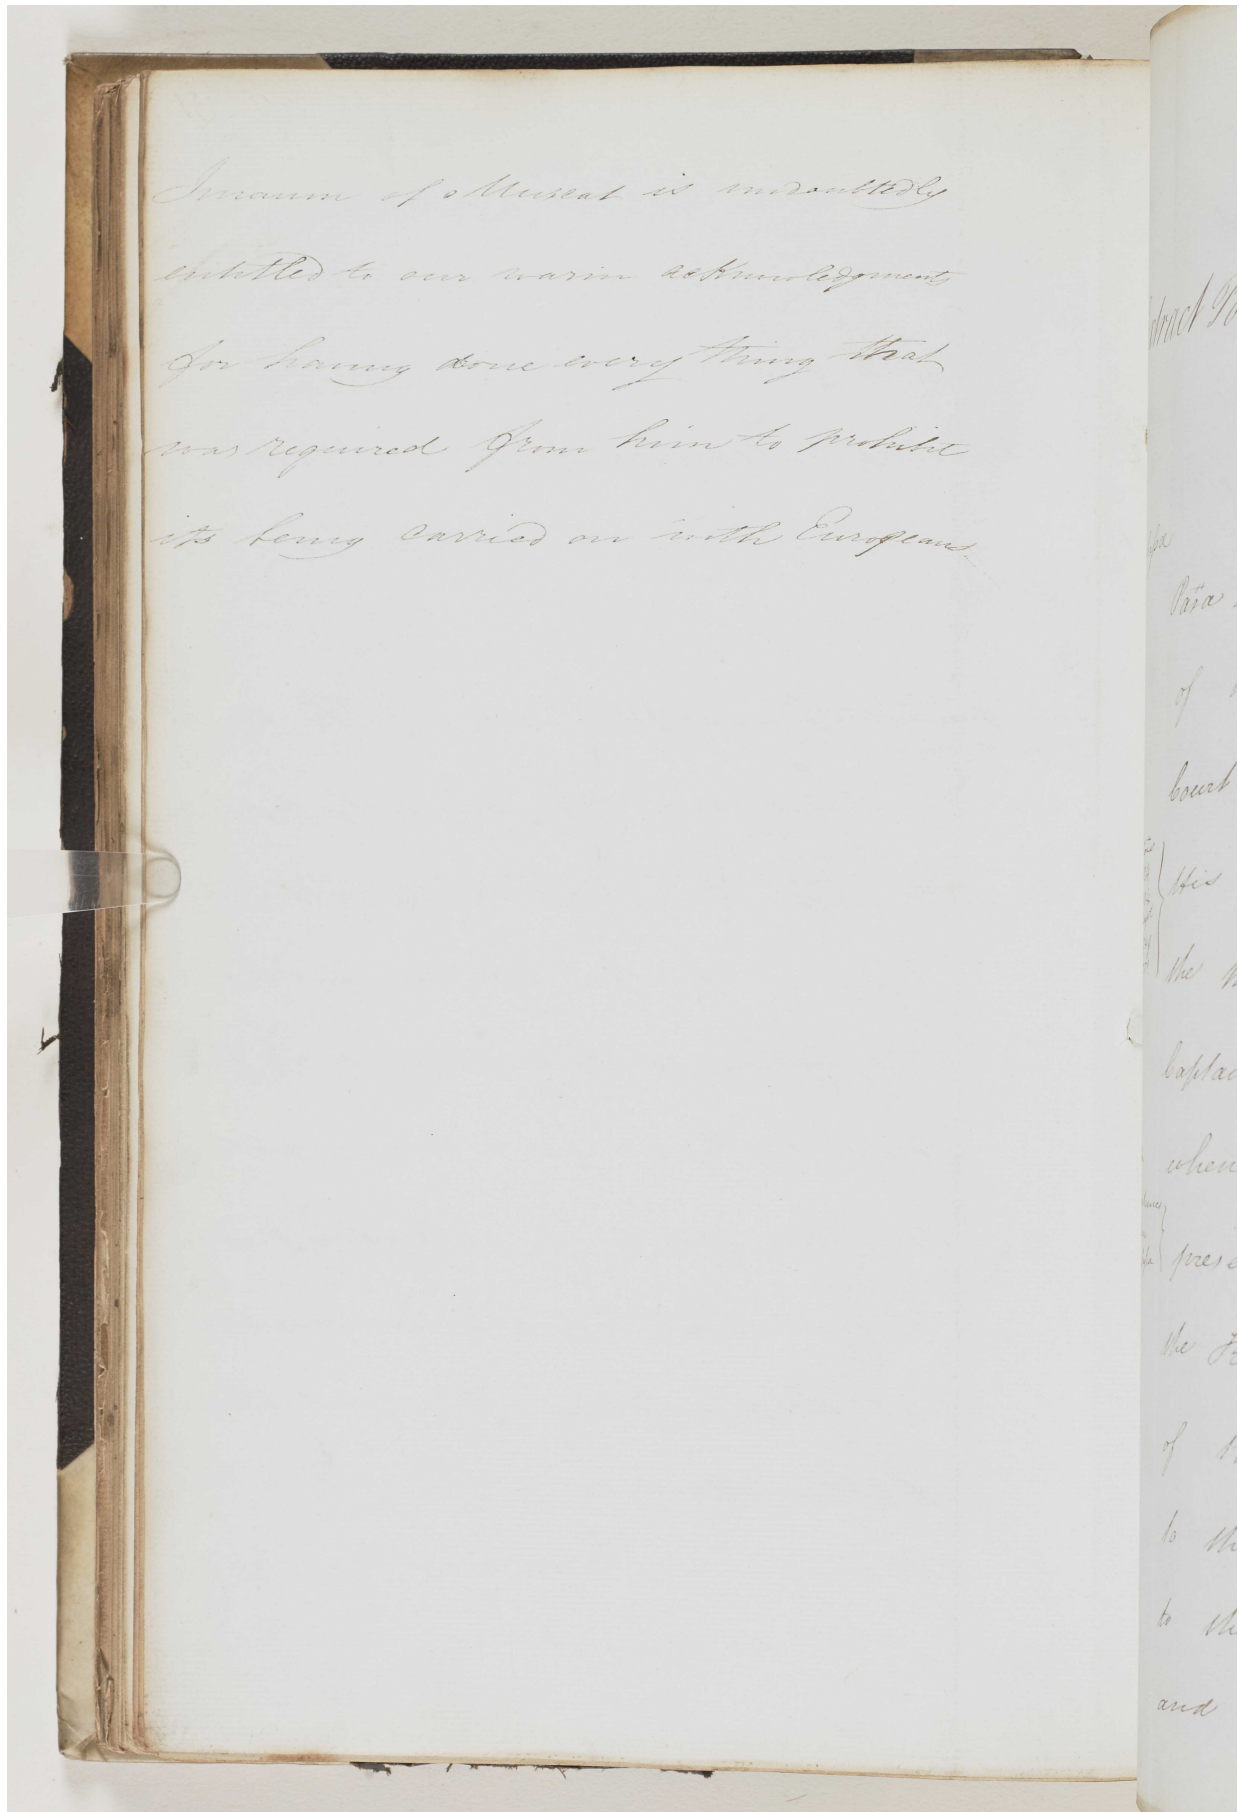 Imaum of Muscat is undoubtedly
entitled to our warm acknowledgments
for having done every thing that
was required from him to prohibit
its being carried on with Europeans.
Para
of
Court
His
the
when
the
of
to the
to the
and